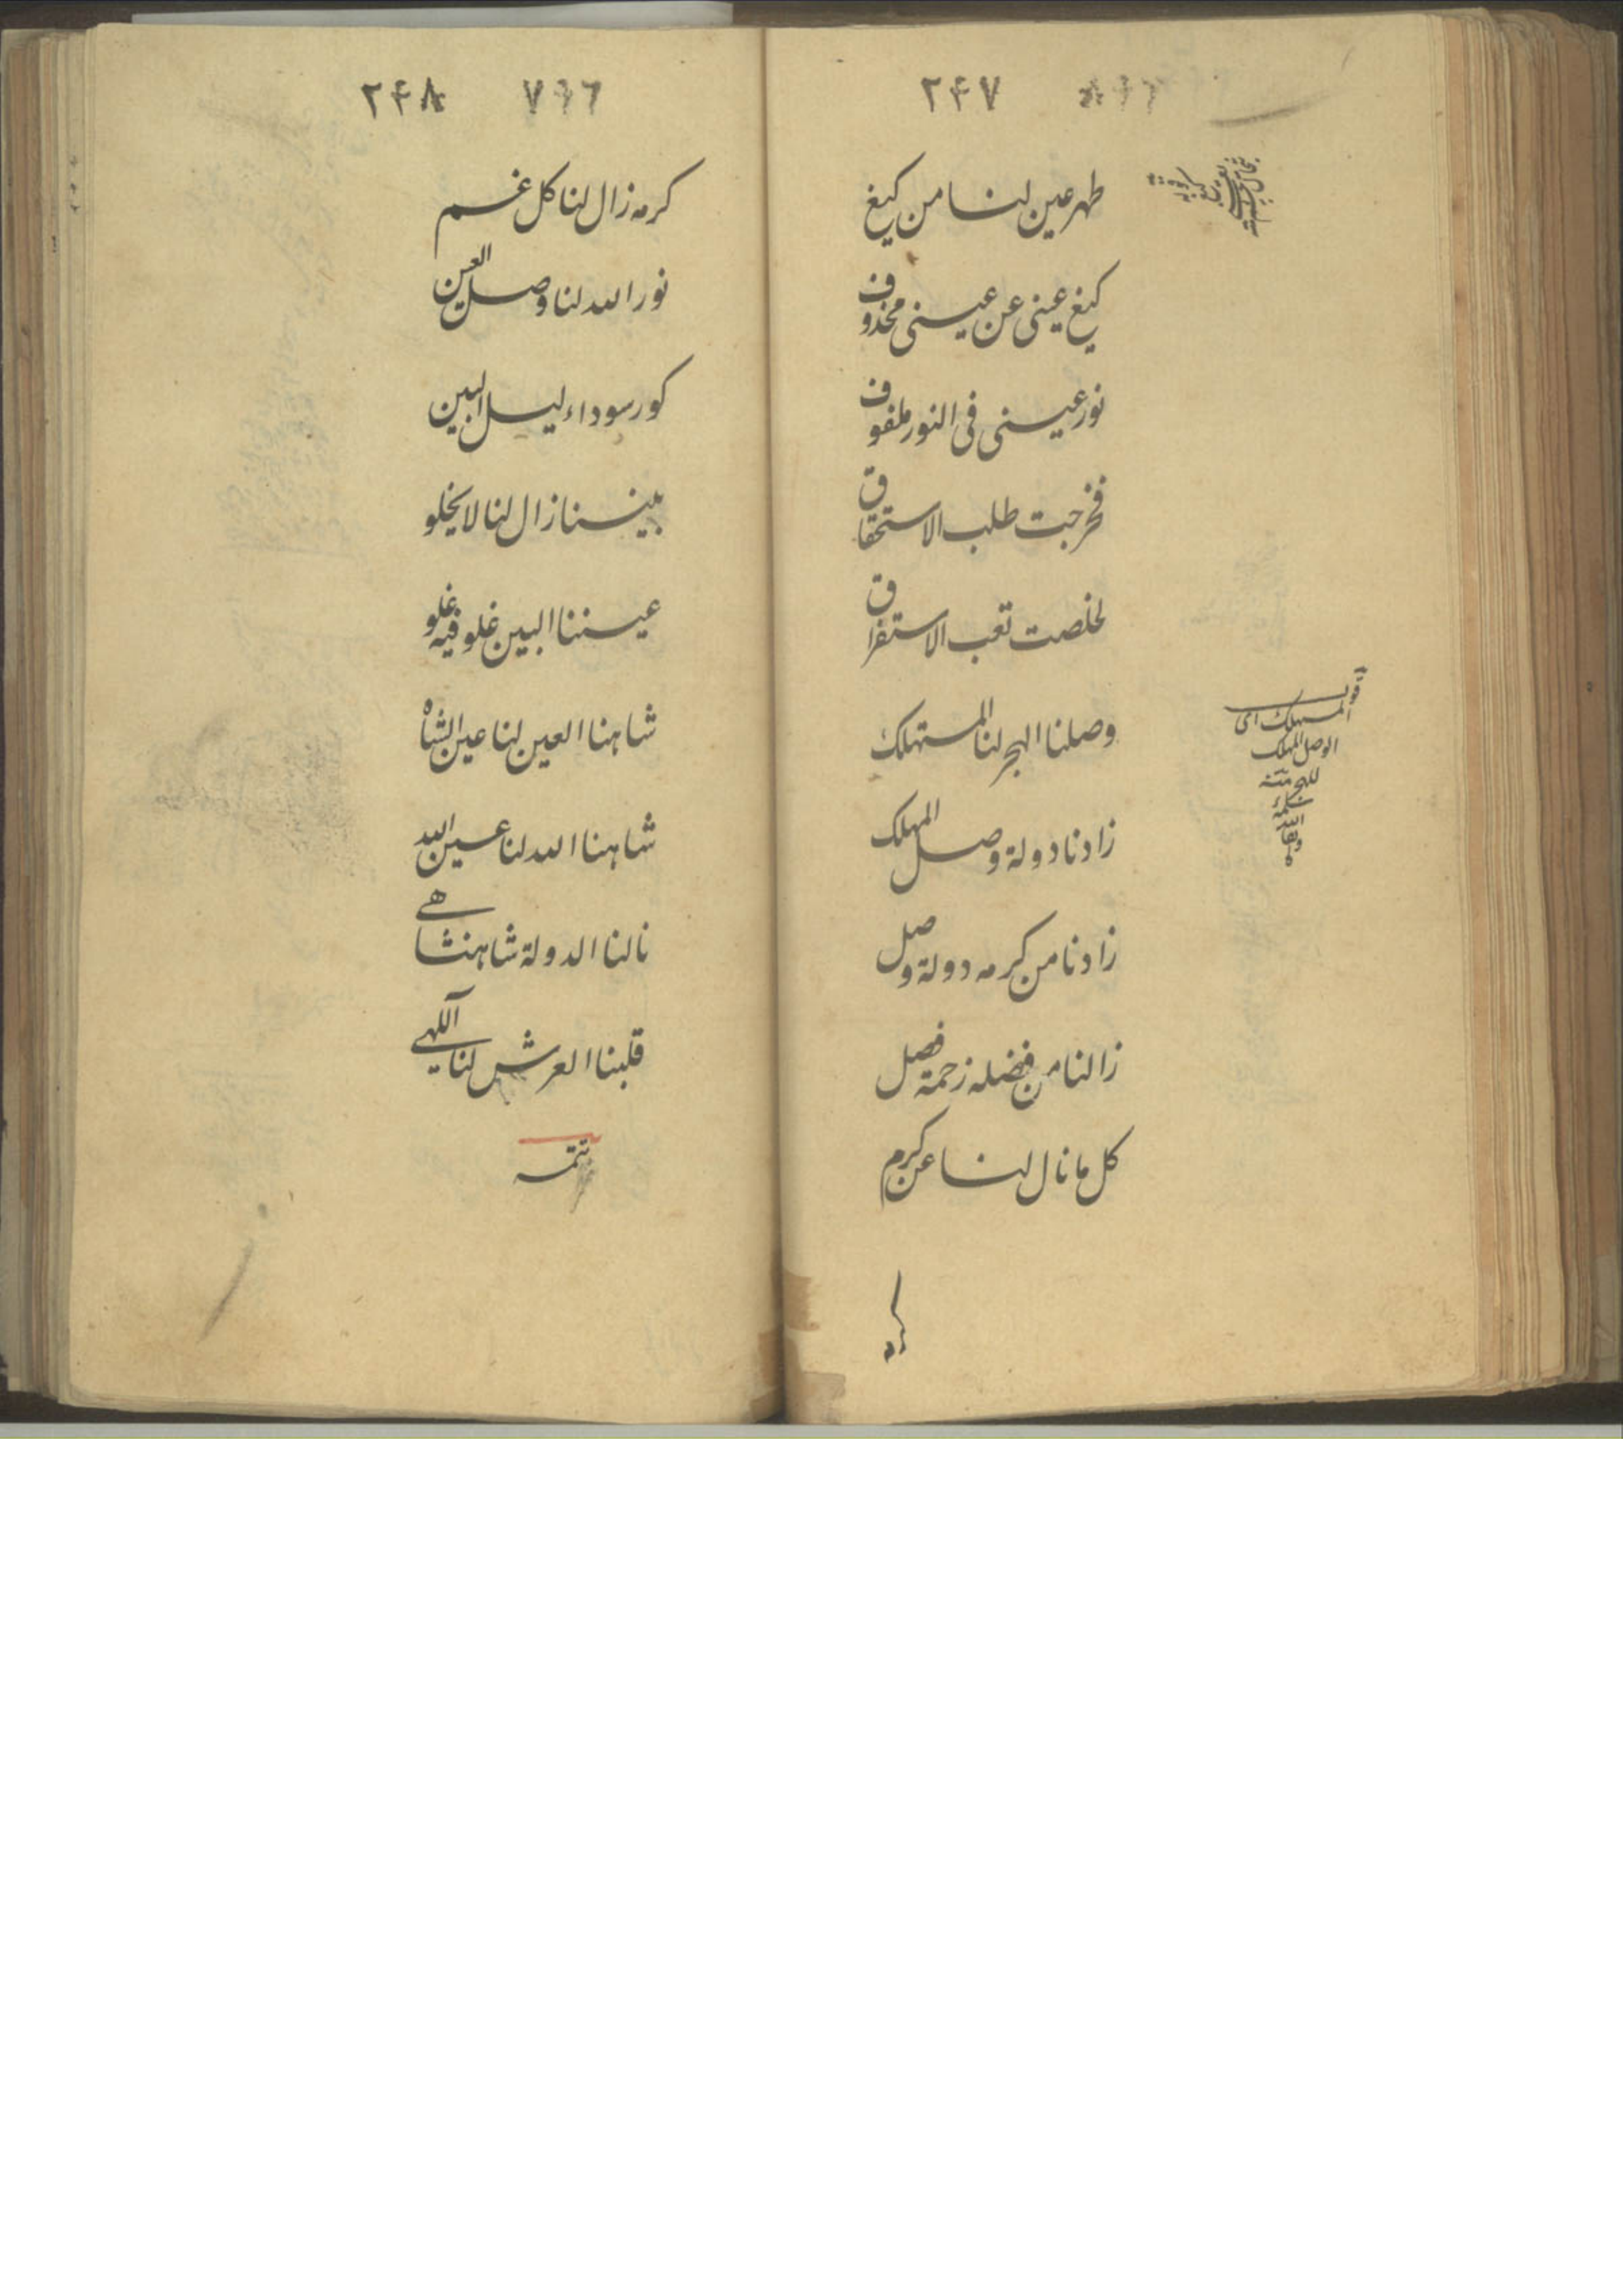 ۲۴۷
طهر عین لنا من کیغ
کیغ عینی عن عینی محذوف
نور عینی فی النور ملفوف
فخرجت طلب الاستحقاق
لخلصت تعب الاستغراق
وصلنا الهجر لنا المستهلک
زادنا دولة وصل المهلک
زادنا من کرمه دولة وصل
زالنا من فضله زحمة فصل
کل ما نال لنا عن کرم
کرمه
قوله
المستهلک ای
الوصل المهلک
للهجر
۲۴۸ ۷۹۶
کرمه زال لنا کل غم
نور الله لنا وصل العین
کور سوداء لیل البین
بیننا زال لنا لا یخلو
عیننا البین غلو فیه غلو
شاهنا العین لنا عین الشاه
شاهنا الله لنا عین الله
نالنا الدولة شاهنشاهے
قلبنا العرش لنا آلٓهے
تتمه